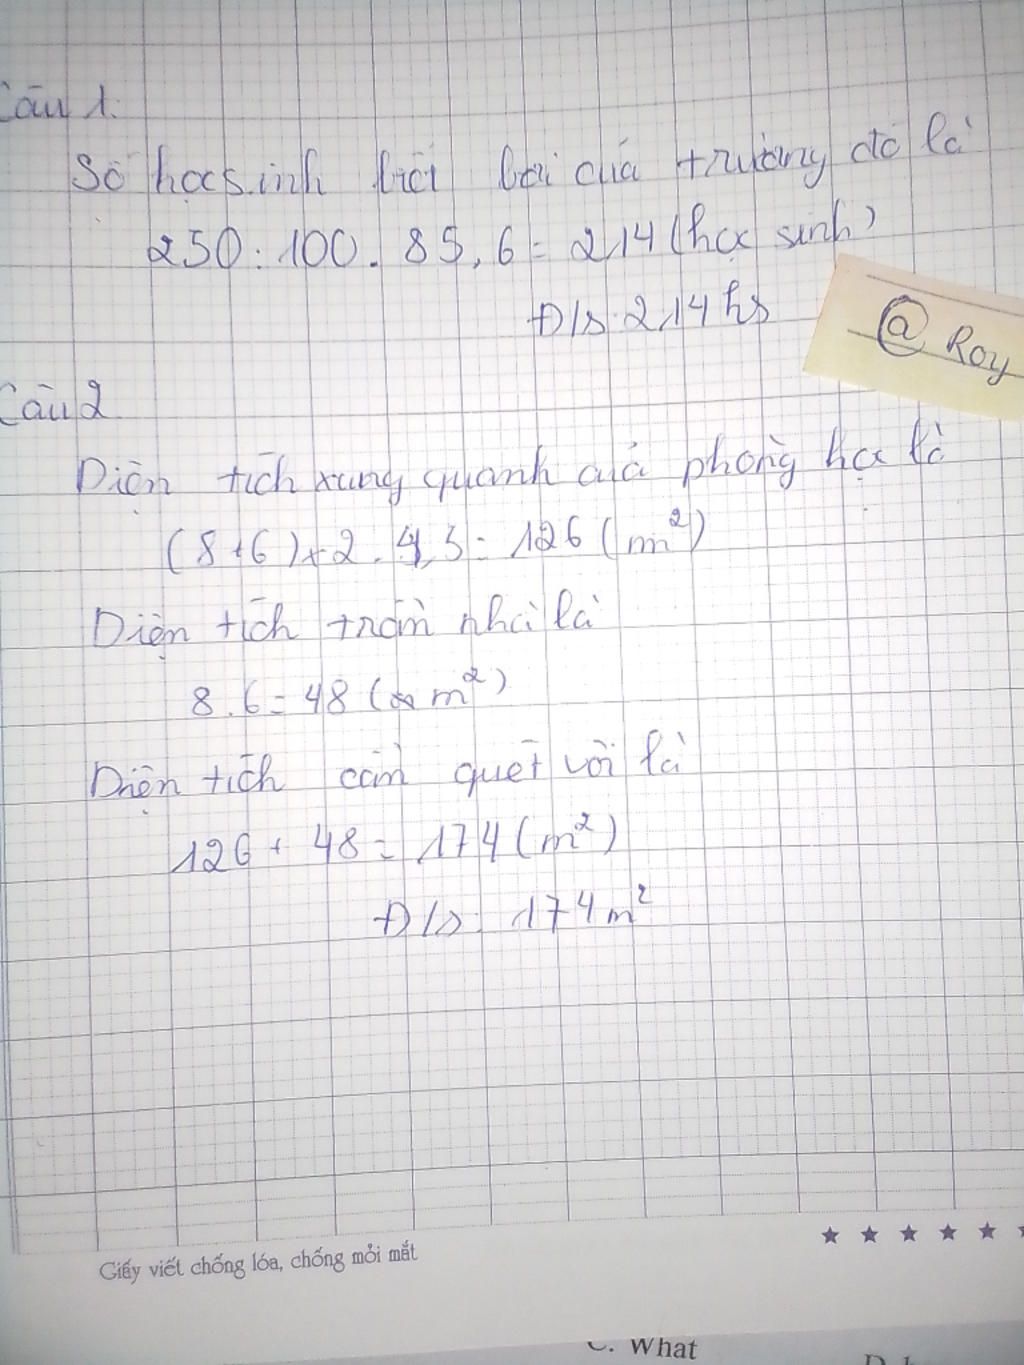 Câu 1.
Số học sinh biết bơi của trường đó là
250 : 100 . 85,6 = 214 (học sinh)
Đ/s: 214 hs
@ Roy
Câu 2
Diện tích xung quanh của phòng học là
(8+6) x 2 . 4,5 = 126 (m²)
Diện tích trần nhà là
8 . 6 = 48 (m²)
Diện tích cần quét vôi là
126 + 48 = 174 (m²)
Đ/s: 174 m²
Giấy viết chống lóa, chống mỏi mắt
C. What